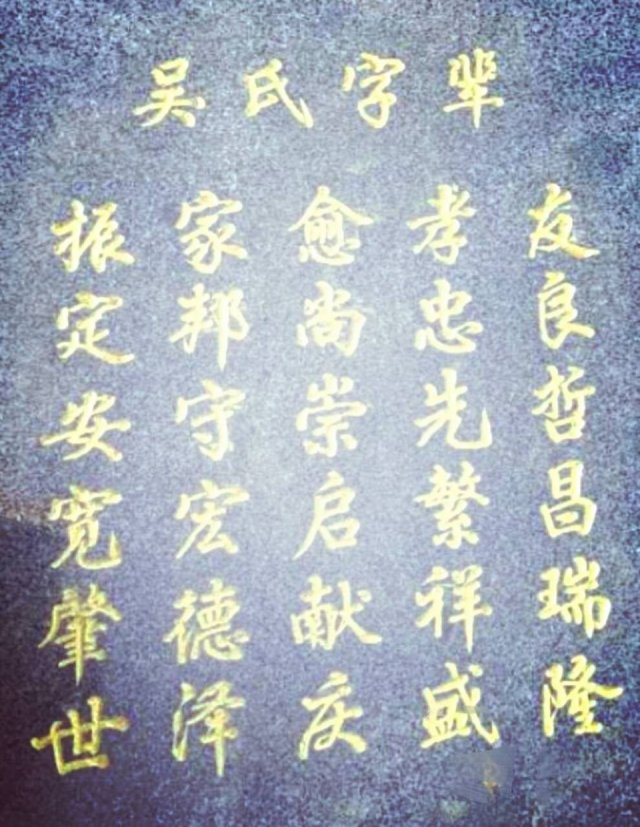 吴氏字辈
友良哲昌瑞隆
孝忠先繁祥盛
愈尚崇启献庆
家邦守宏德泽
振定安宽肇世